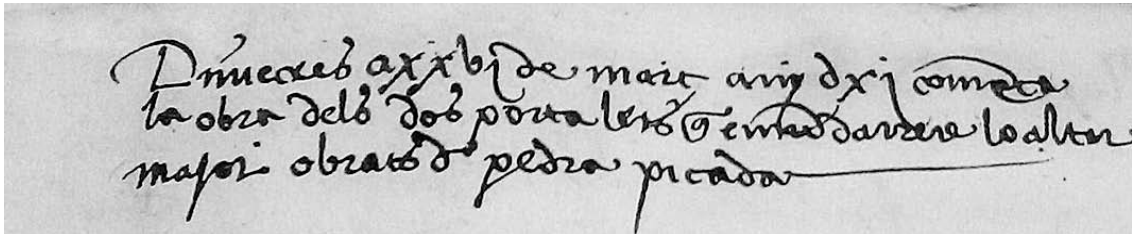 Dimecres a xxvi de març any dxi comença
la obra dels dos portalets darrere lo altar
major obrats de pedra picada